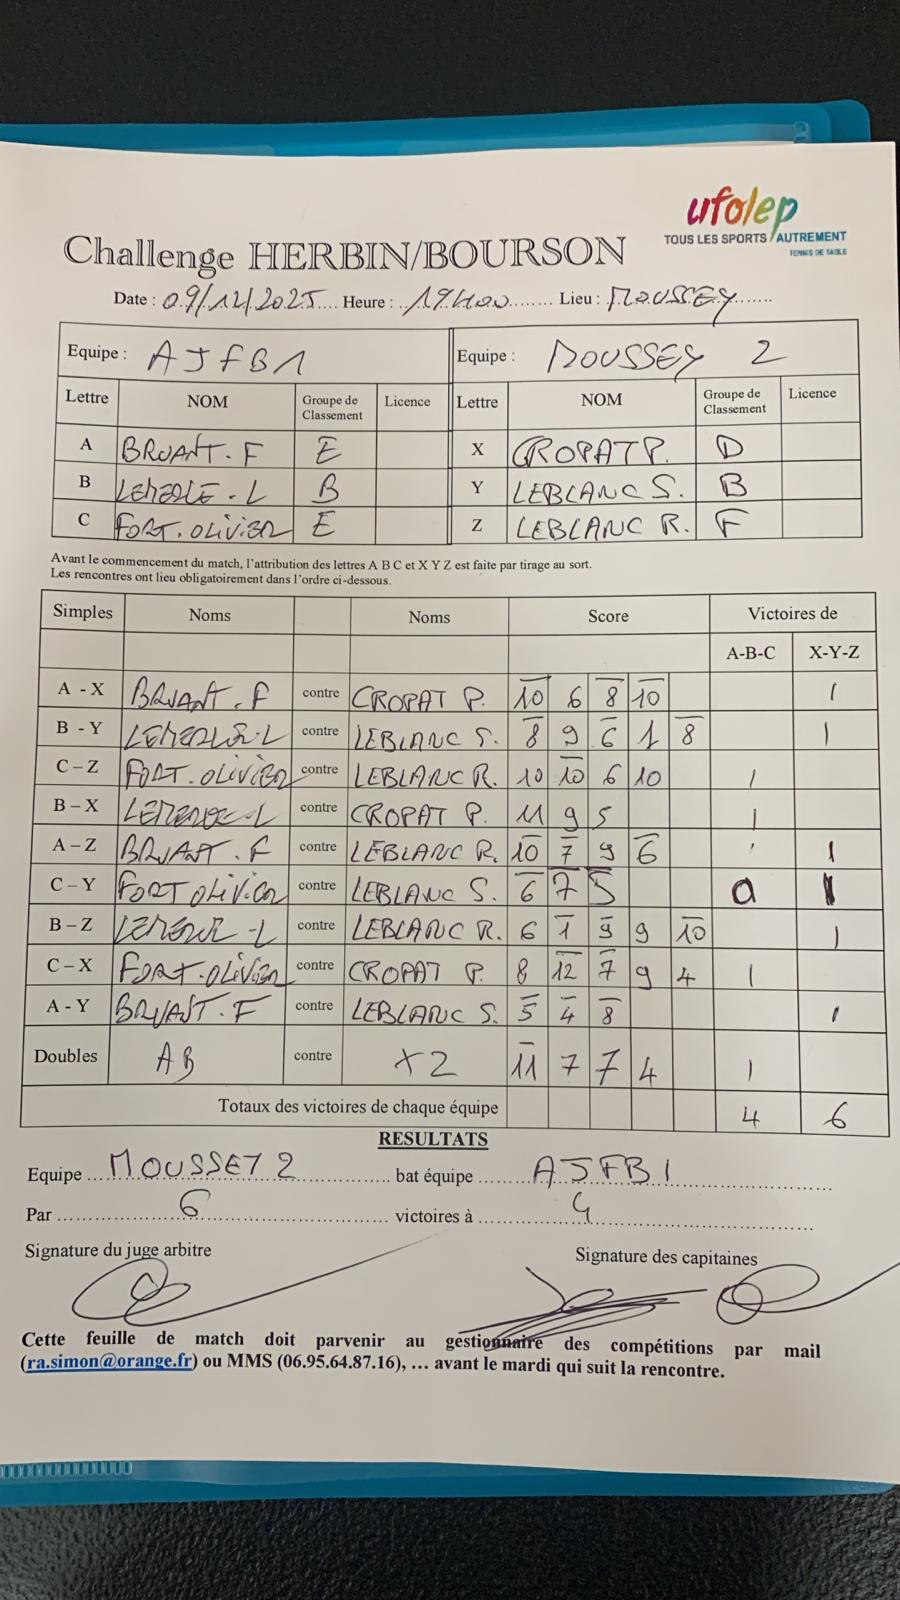 ufolep
TOUS LES SPORTS AUTREMENT
TENNIS DE TABLE
Challenge HERBIN/BOURSON
Date : 09/12/2025 Heure : 19H00 Lieu : MOUSSEY
Equipe : AJFB1 Equipe : MOUSSEY 2
Lettre NOM Groupe de Classement Licence Lettre NOM Groupe de Classement Licence
A BRUANT. F E X CROPAT P. D
B L B Y LEBLANC S. B
C FORT. OLIVIER E Z LEBLANC R. F
Avant le commencement du match, l'attribution des lettres A B C et X Y Z est faite par tirage au sort.
Les rencontres ont lieu obligatoirement dans l'ordre ci-dessous.
Simples Noms Noms Score Victoires de
A-B-C X-Y-Z
A - X BRUANT. F contre CROPAT P. 1̅0̅ 6 8̅ 1̅0̅ 1
B - Y L contre LEBLANC S. 8̅ 9 6̅ 1 8̅ 1
C – Z FORT. OLIVIER contre LEBLANC R. 10 1̅0̅ 6 10 1
B – X L contre CROPAT P. 11 9 5 1
A – Z BRUANT. F contre LEBLANC R. 1̅0̅ 7̅ 9 6̅ 1
C – Y FORT OLIVIER contre LEBLANC S. 6̅ 7̅ 5̅ 0 1
B – Z L contre LEBLANC R. 6 1̅ 9̅ 9 1̅0̅ 1
C – X FORT. OLIVIER contre CROPAT P. 8 1̅2̅ 7̅ 9 4 1
A - Y BRUANT. F contre LEBLANC S. 5̅ 4̅ 8̅ 1
Doubles AB contre XZ 1̅1̅ 7 7 4 1
Totaux des victoires de chaque équipe 4 6
RESULTATS
Equipe MOUSSEY 2 bat équipe AJFB1
Par 6 victoires à 4
Signature du juge arbitre Signature des capitaines
Cette feuille de match doit parvenir au gestionnaire des compétitions par mail
(ra.simon@orange.fr) ou MMS (06.95.64.87.16), … avant le mardi qui suit la rencontre.